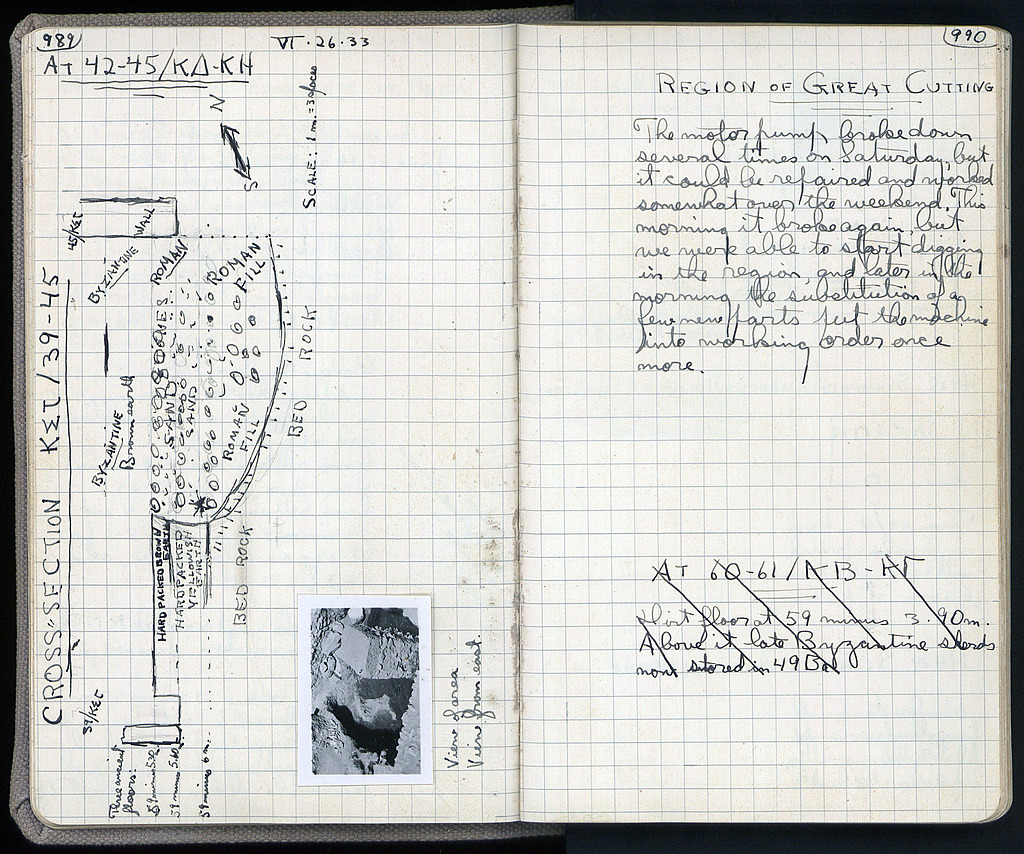 989
VI·26·33
AT 42-45/ΚΔ-ΚΗ
N
S
SCALE: 1 m. = 3 spaces
CROSS-SECTION ΚΣΤ/39-45
45/ΚΣΤ
WALL
BYZANTINE
ROMAN
ROMAN
FILL
STONES
SAND
SAND
ROMAN
FILL
BYZANTINE
Brown earth
BED ROCK
BED ROCK
HARD PACKED BROWN
EARTH
HARD PACKED
YELLOWISH
EARTH
39/ΚΣΤ
Three ancient
floors:
59 minus 5.30
59 minus 5.60
59 minus 6 m.
View of area
View from east.
990
REGION OF GREAT CUTTING
The motor pump broke down
several times on Saturday, but
it could be repaired and worked
somewhat over the weekend. This
morning it broke again, but
we were able to start digging
in the region, and later in the
morning the substitution of a
few new parts put the machine
into working order once
more.
AT 60-61/ΚΒ-ΚΓ
Dirt floor at 59 minus 3.90m.
Above it late Byzantine sherds
now stored in 49 Ba